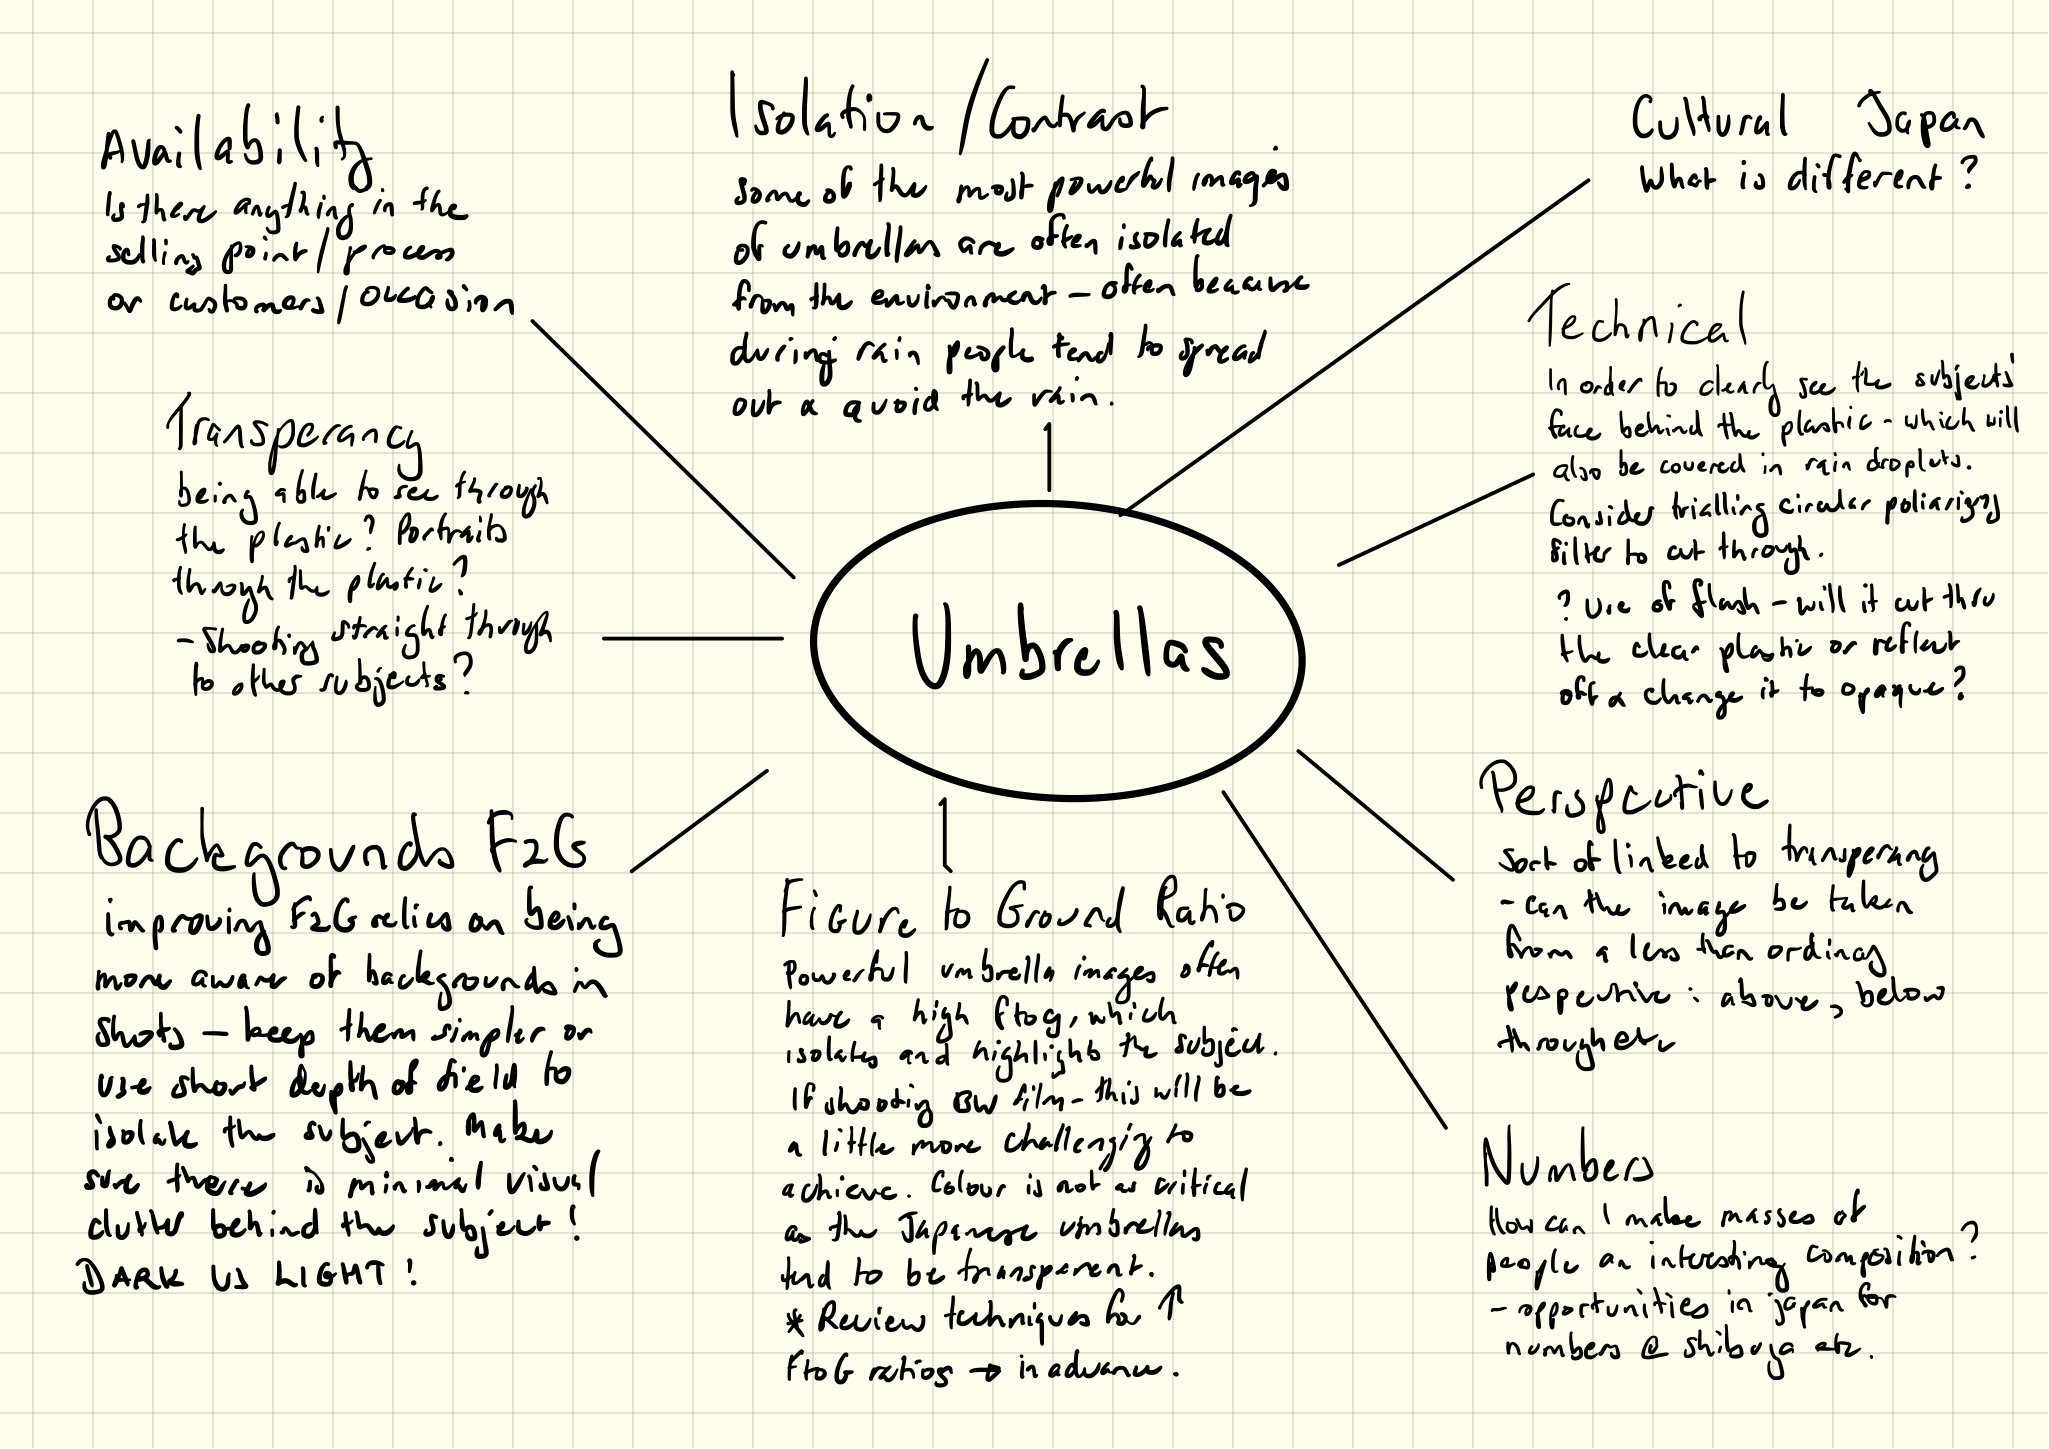 Availability
Is there anything in the
selling point / process
or customers / occasion
Isolation / Contrast
some of the most powerful images
of umbrellas are often isolated
from the environment – often because
during rain people tend to spread
out & avoid the rain.
Cultural Japan
What is different?
Technical
In order to clearly see the subjects'
face behind the plastic - which will
also be covered in rain droplets.
Consider trialling circular poliarizing
filter to cut through.
? Use of flash – will it cut thru
the clear plastic or reflect
off & change it to opaque?
Transperancy
being able to see through
the plastic? Portraits
through the plastic?
– Shooting straight through
to other subjects?
Umbrellas
Backgrounds F2G
improving F2G relies on being
more aware of backgrounds in
shots – keep them simpler or
use short depth of field to
isolate the subject. Make
sure there is minimal visual
clutter behind the subject!
DARK VS LIGHT!
Figure to Ground Ratio
Powerful umbrella images often
have a high ftog, which
isolates and highlights the subject.
If shooting BW film – this will be
a little more challenging to
achieve. Colour is not as critical
as the Japanese umbrellas
tend to be transparent.
* Review techniques for ↑
FtoG ratios → in advance.
Perspective
Sort of linked to transperancy
- can the image be taken
from a less than ordinary
pespective : above, below
through etc
Numbers
How can I make masses of
people an interesting composition?
– opportunities in japan for
numbers @ shibuya etc.